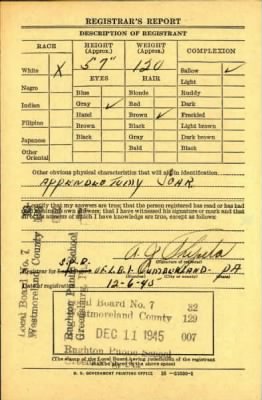 REGISTRAR'S REPORT
DESCRIPTION OF REGISTRANT
RACE HEIGHT (Approx.) WEIGHT (Approx.) COMPLEXION
5'7" 120
White X Sallow ✓
EYES HAIR Light
Negro Blue Blonde Ruddy
Indian Gray ✓ Red Dark
Hazel Brown ✓ Freckled
Filipino Brown Black Light brown
Japanese Black Gray Dark brown
Other Oriental Bald Black
Other obvious physical characteristics that will aid in identification
APPENDECTOMY SCAR
I certify that my answers are true; that the person registered has read or has had
his own answers; that I have witnessed his signature or mark and that
answers of which I have knowledge are true, except as follows:
(Signature of registrar)
Registrar for L.B.1 CUMBERLAND PA
(City or county) (State)
Date of registration 12-6-45
Local Board No. 7 32
Westmoreland County 129
DEC 11 1945 007
Local Board No. 7
Westmoreland County
(The stamp of the Local Board having jurisdiction of the registrant
shall be placed in the above space)
U. S. GOVERNMENT PRINTING OFFICE